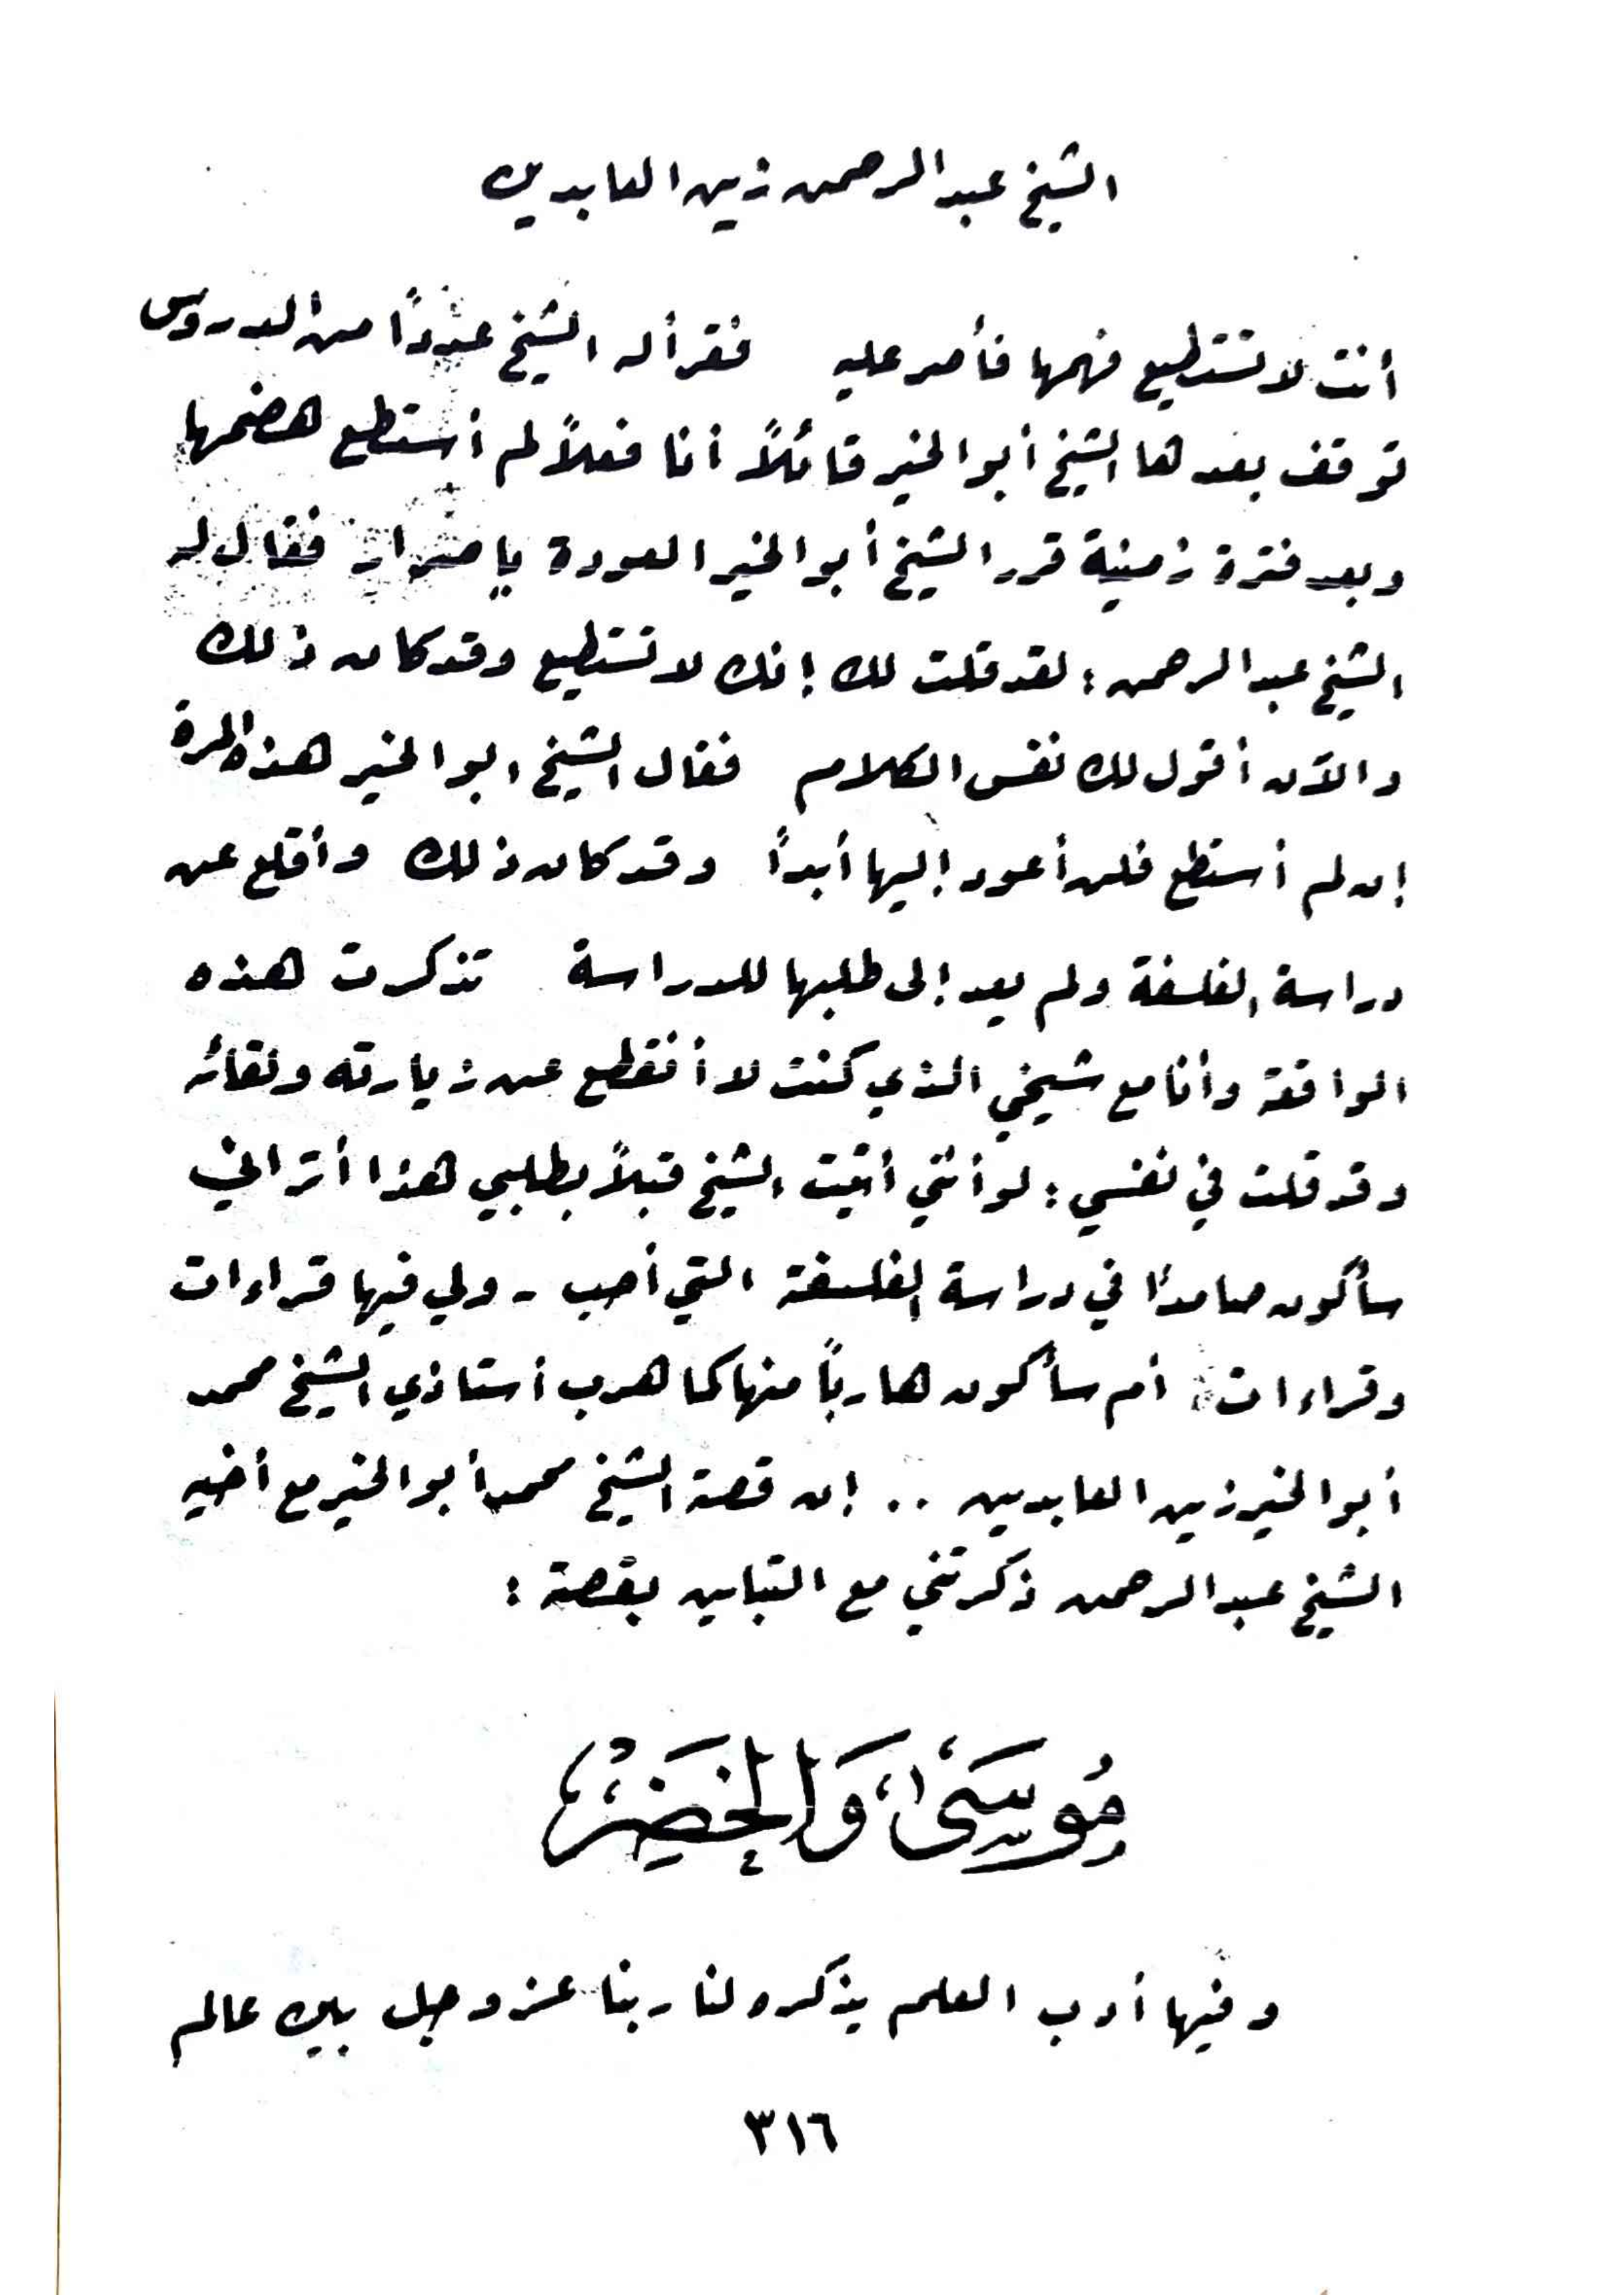 الشيخ عبد الرحمن زين العابدين
أنت لا تستطيع فهمها فأصر عليه فقرأ له الشيخ عدداً من الدروس
توقف بعدها الشيخ أبو الخير قائلاً أنا فعلاً لم أستطع هضمها
وبعد فترة زمنية قرر الشيخ أبو الخير العودة بإصرار فقال له
الشيخ عبد الرحمن : لقد قلت لك إنك لا تستطيع وقد كان ذلك
والآن أقول لك نفس الكلام فقال الشيخ ابو الخير هذه المرة
إن لم أستطع فلن أعود إليها أبداً وقد كان ذلك وأقلع عن
دراسة الفلسفة ولم يعد إلى طلبها للدراسة تذكرت هذه
الواقعة وأنا مع شيخي الذي كنت لا أنقطع عن زيارته ولقائه
وقد قلت في نفسي : لو أنني أتيت الشيخ قبلاً بطلبي هذا أتراني
سأكون صامداً في دراسة الفلسفة التي أحب - ولي فيها قراءات
وقراءات أم سأكون هارباً منها كما هرب أستاذي الشيخ محمد
أبو الخير زين العابدين .. إن قصة الشيخ محمد أبو الخير مع أخيه
الشيخ عبد الرحمن ذكرتني مع التباين بقصة :
مُوسَىٰ وَالخَضِرْ
وفيها أدب العلم يذكره لنا ربنا عز وجل بين عالم
٣١٦